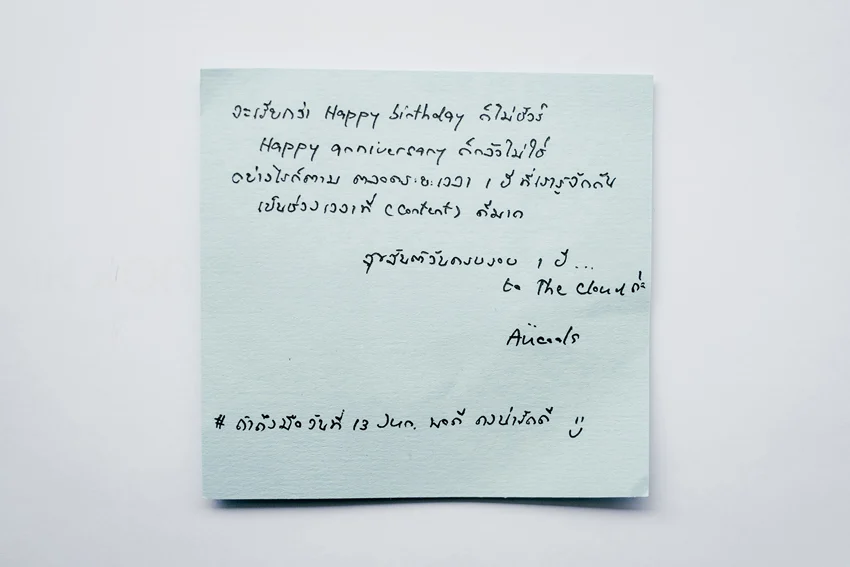 จะเรียกว่า Happy birthday ก็ไม่ชัวร์
Happy anniversary ก็กลัวไม่ใช่
อย่างไรก็ตาม ตลอดระยะเวลา 1 ปี ที่เรารู้จักกัน
เป็นช่วงเวลาที่ (content) ดีมาก
สุขสันต์วันครบรอบ 1 ปี ...
to The Cloud ค่ะ
# ถ้าถึงมือวันที่ 13 พอดี คงน่ารักดี